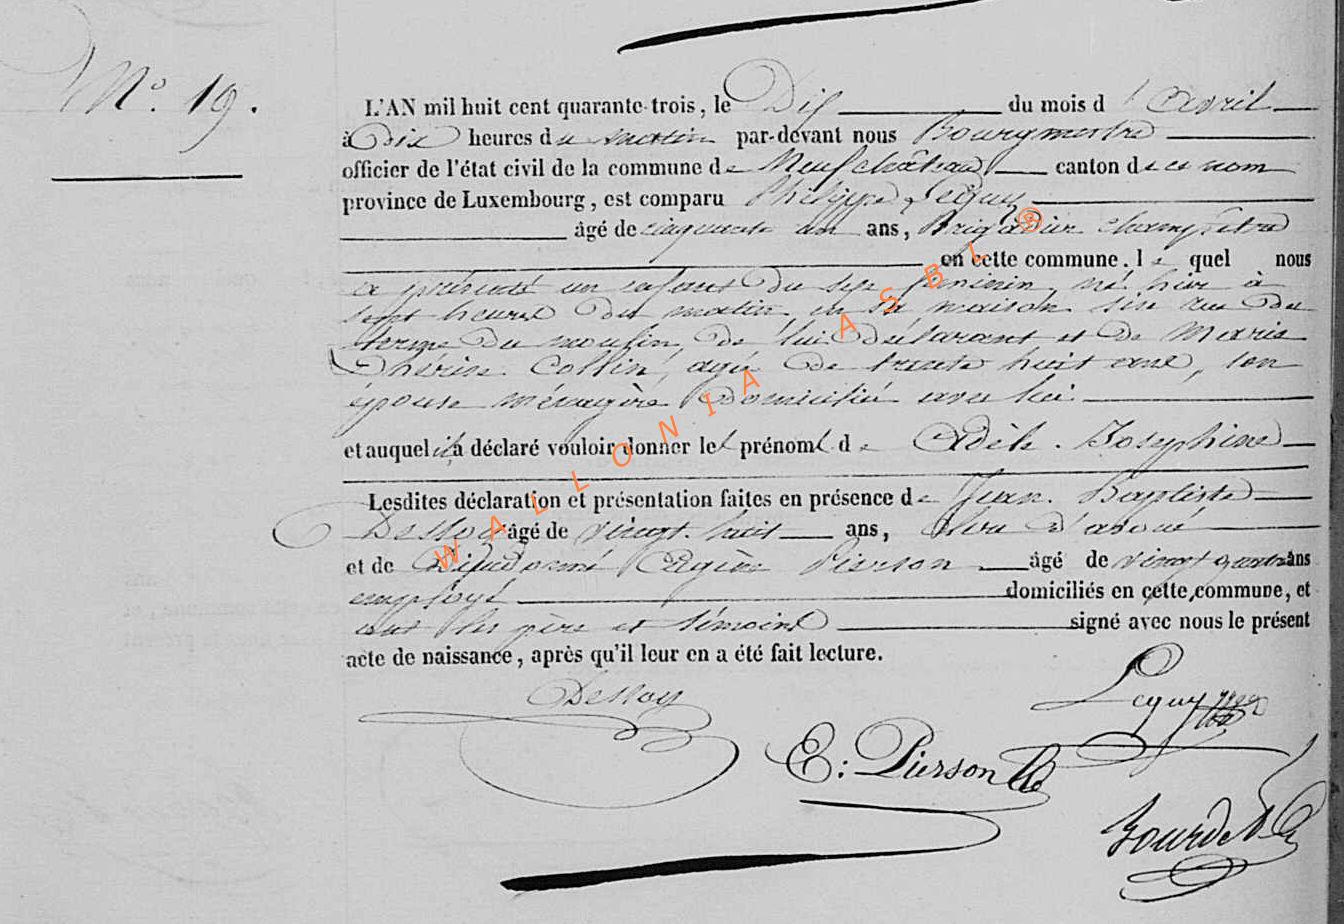 N° 19.
L'AN mil huit cent quarante-trois, le Dix du mois d'Avril
à Dix heures du matin par-devant nous Bourgmestre
officier de l'état civil de la commune de Neufchâteau canton de ce nom
province de Luxembourg, est comparu Philippe Leguy
âgé de cinquante un ans, Brigadier champêtre
en cette commune. le quel nous
a présenté un enfant du sexe féminin, né hier à
sept heures du matin en sa maison sise rue du
terme du moulin, de lui déclarant et de Marie
Thérèse Collin, agée de trente huit ans, son
épouse ménagère domiciliée avec lui.
et auquel il a déclaré vouloir donner les prénoms de Adèle. Josephine
Lesdites déclaration et présentation faites en présence de Jean. Baptiste
Dessoy âgé de vingt. huit ans, clerc d'avoué
et de Dieudonné Eugène Pierson âgé de vingt quatre ans
employé domiciliés en cette commune, et
ont les père et témoins signé avec nous le présent
acte de naissance, après qu'il leur en a été fait lecture.
Dessoy
Leguy
E: Pierson
WALLONIA ASBL ®